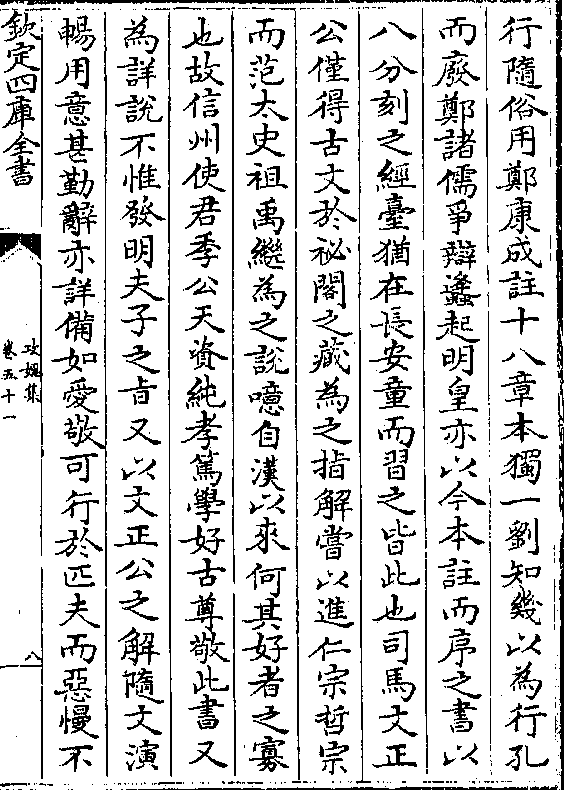 行隨俗用鄭康成註十八章本獨一劉知幾以為行孔
而廢鄭諸儒爭辯蠭起明皇亦以今本註而序之書以
八分刻之經臺猶在長安童而習之皆此也司馬文正
公僅得古文於祕閣之藏為之指解嘗以進仁宗哲宗
而范太史祖禹繼為之說噫自漢以來何其好者之寡
也故信州使君季公天資純孝篤學好古尊敬此書又
為詳說不惟發明夫子之㫖又以文正公之解隨文演
暢用意甚勤辭亦詳備如愛敬可行於匹夫而惡慢不
欽定四庫全書
攻媿集
卷五十一
八